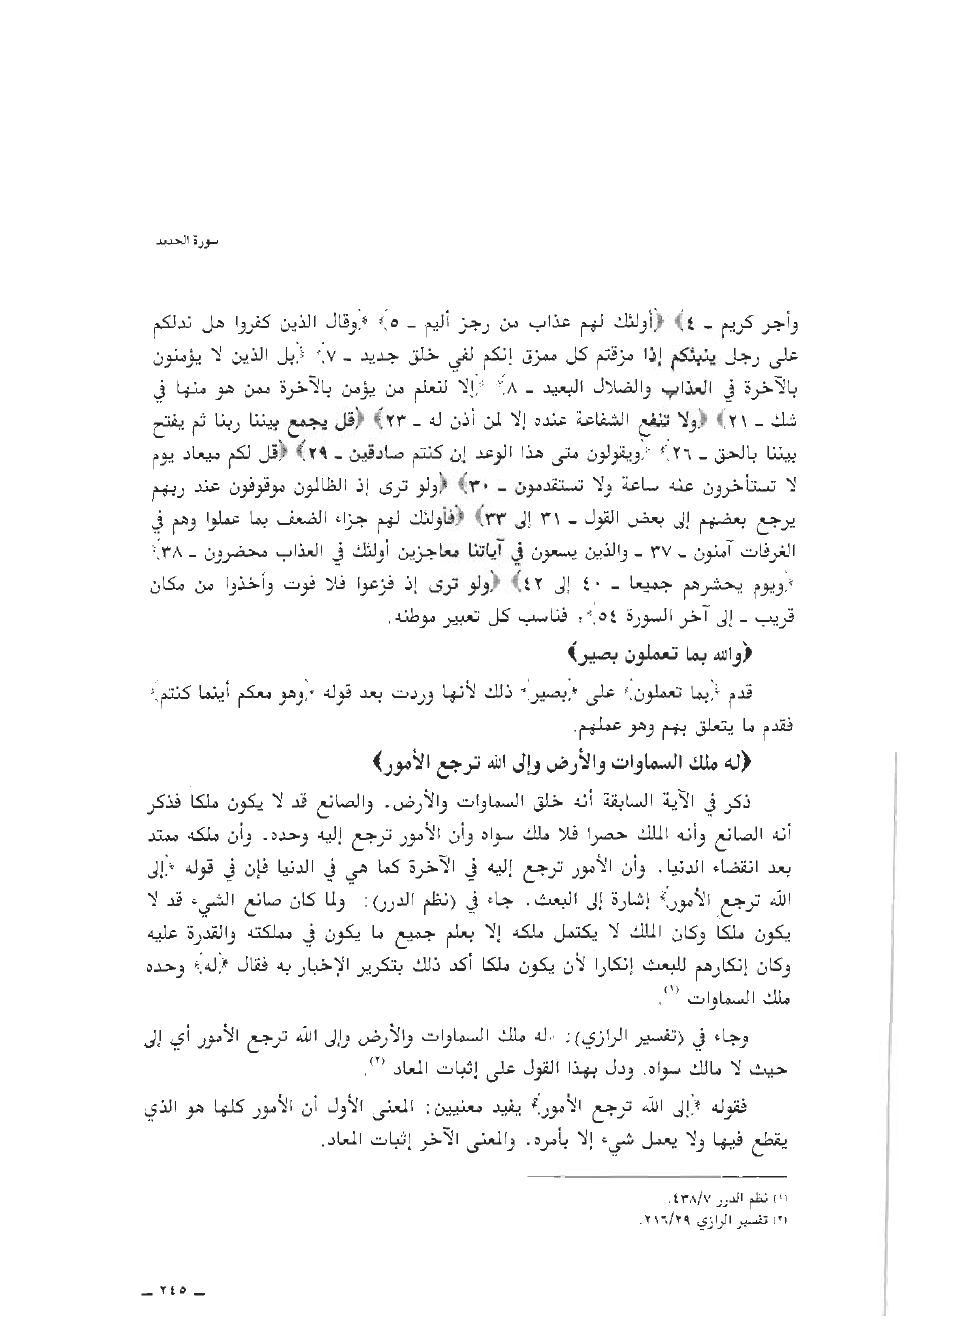 سورة الحديد
وأجر كريم ـ ٤﴾ ﴿أولئك لهم عذاب من رجز أليم ـ ٥﴾ ﴿وقال الذين كفروا هل ندلكم
على رجل ينبئكم إذا مزقتم كل ممزق إنكم لفي خلق جديد ـ ٧﴾ ﴿بل الذين لا يؤمنون
بالآخرة في العذاب والضلال البعيد ـ ٨﴾ ﴿إلا لنعلم من يؤمن بالآخرة ممن هو منها في
شك ـ ٢١﴾ ﴿ولا تنفع الشفاعة عنده إلا لمن أذن له ـ ٢٣﴾ ﴿قل يجمع بيننا ربنا ثم يفتح
بيننا بالحق ـ ٢٦﴾ ﴿ويقولون متى هذا الوعد إن كنتم صادقين ـ ٢٩﴾ ﴿قل لكم ميعاد يوم
لا تستأخرون عنه ساعة ولا تستقدمون ـ ٣٠﴾ ﴿ولو ترى إذ الظالمون موقوفون عند ربهم
يرجع بعضهم إلى بعض القول ـ ٣١ إلى ٣٣﴾ ﴿فأولئك لهم جزاء الضعف بما عملوا وهم في
الغرفات آمنون ـ ٣٧ ـ والذين يسعون في آياتنا معاجزين أولئك في العذاب محضرون ـ ٣٨﴾
﴿ويوم يحشرهم جميعا ـ ٤٠ إلى ٤٢﴾ ﴿ولو ترى إذ فزعوا فلا فوت وأخذوا من مكان
قريب ـ إلى آخر السورة ٥٤﴾، فناسب كل تعبير موطنه.
﴿والله بما تعملون بصير﴾
قدم ﴿بما تعملون﴾ على ﴿بصير﴾ ذلك لأنها وردت بعد قوله ﴿وهو معكم أينما كنتم﴾
فقدم ما يتعلق بهم وهو عملهم.
﴿له ملك السماوات والأرض وإلى الله ترجع الأمور﴾
ذكر في الآية السابقة أنه خلق السماوات والأرض. والصانع قد لا يكون ملكا فذكر
أنه الصانع وأنه الملك حصرا فلا ملك سواه وأن الأمور ترجع إليه وحده. وأن ملكه ممتد
بعد انقضاء الدنيا. وأن الأمور ترجع إليه في الآخرة كما هي في الدنيا فإن في قوله ﴿إلى
الله ترجع الأمور﴾ إشارة إلى البعث. جاء في (نظم الدرر): ولما كان صانع الشيء قد لا
يكون ملكا وكان الملك لا يكتمل ملكه إلا بعلم جميع ما يكون في مملكته والقدرة عليه
وكان إنكارهم للبعث إنكارا لأن يكون ملكا أكد ذلك بتكرير الإخبار به فقال ﴿له﴾ وحده
ملك السماوات (١).
وجاء في (تفسير الرازي): له ملك السماوات والأرض وإلى الله ترجع الأمور أي إلى
حيث لا مالك سواه. ودل بهذا القول على إثبات المعاد (٢).
فقوله ﴿إلى الله ترجع الأمور﴾ يفيد معنيين: المعنى الأول أن الأمور كلها هو الذي
يقطع فيها ولا يعمل شيء إلا بأمره. والمعنى الآخر إثبات المعاد.
(١) نظم الدرر ٤٣٨/٧.
(٢) تفسير الرازي ٢١٦/٢٩.
ـ ٢٤٥ ـ